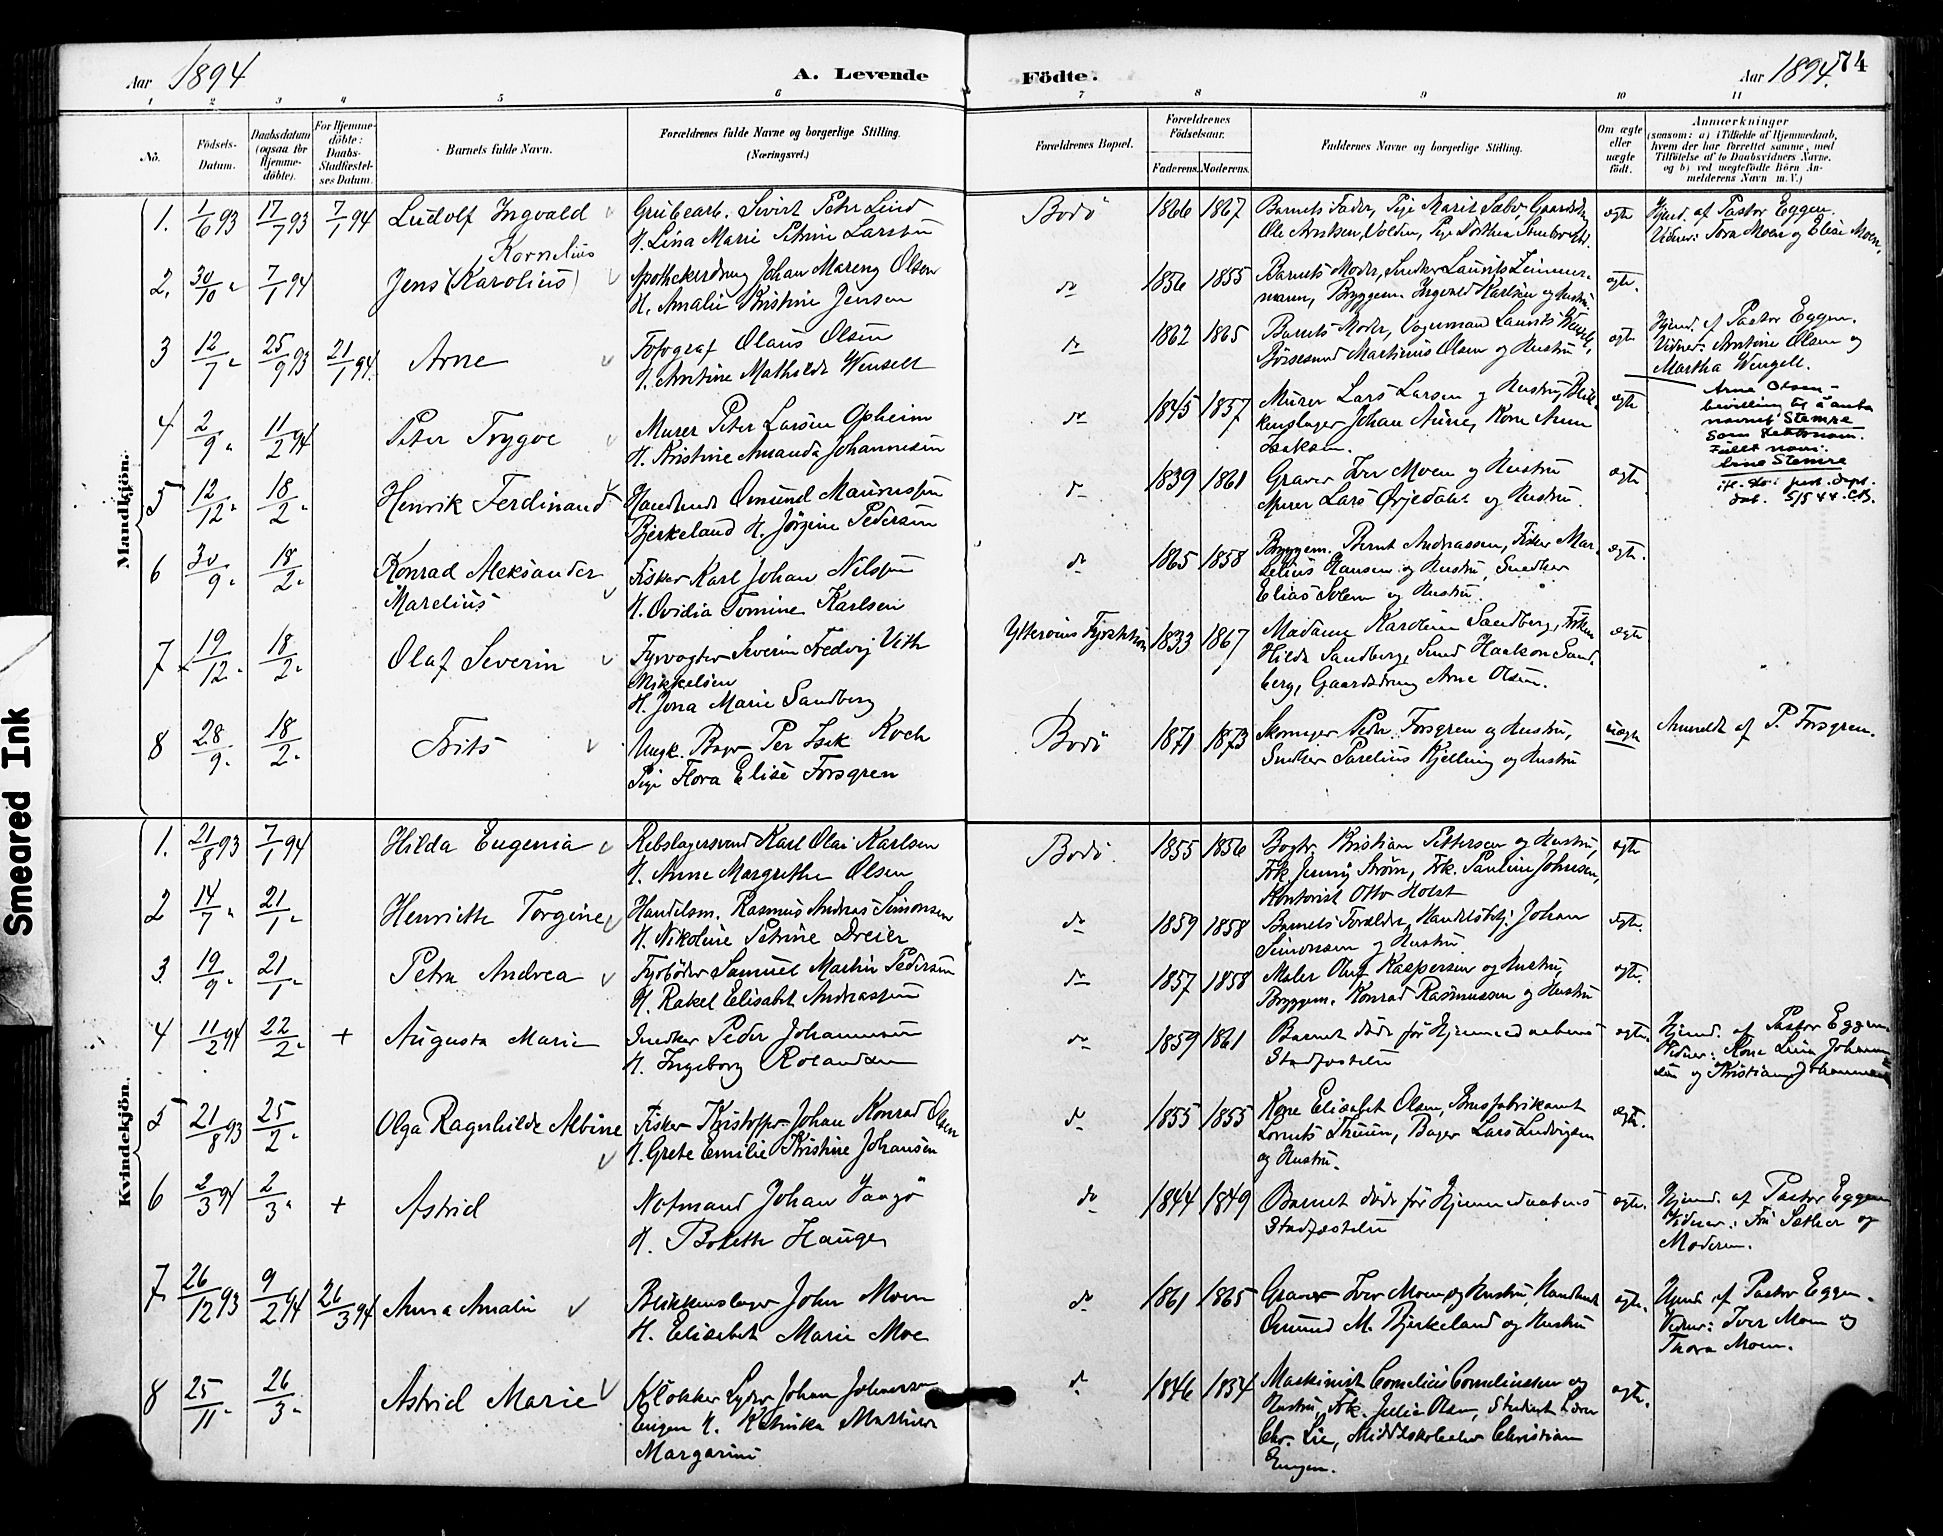 Smeared Ink
Aar 1894 A. Levende Födte. Aar 1894. 74
1 2 3 4 5 6 7 8 9 10 11
No. Födsels-Datum. Daabsdatum (ogsaa for Hjemme-döbte). For Hjemme-döbte: Daabs-Stadfæstel-ses Datum. Barnets fulde Navn. Forældrenes fulde Navne og borgerlige Stilling. (Næringsvei.) Forældrenes Bopæl. Forældrenes Födselsaar. Faderens. Moderens. Faddernes Navne og borgerlige Stilling. Om ægte eller uægte födt. Anmærkninger (saasom: a) i Tilfælde af Hjemmedaab, hvem der har forrettet samme, med Tilföielse af to Daabsvidners Navne, og b) ved uægtefödte Börn An-melderens Navn m. V.)
Mandkjön.
1. 1/6 93 17/7 93 7/1 94 Ludolf Ingvald Kornelius
Grubearb. Sivert Peter Lind
H. Lina Marie Petrine Larsen
Bodö 1866 1867
Ole Arntsen, Volden,
ægte Hjmd. af Pastor Eggen.
Vidner: Tora Moen og Elise Moen.
2. 30/10 " 7/1 94 Jens (Karolius)
Apothekerdreng Johan Mareng Olsen
H. Amalie Kristine Jensen
do 1836 1855
Barnets Moder, Snedker Laurits Zimmer-
mann, Bryggem. Ingvald Karlsen og Hustru
ægte.
3 12/7 " 25/9 93 21/1 94. Arne
Fotograf Olaus Olsen
H. Arntine Mathilde Wensell
do 1862 1865
Barnets Moder, Vognmand Laurits
Martinus Olsen og Hustru
ægte Hjmd. af Pastor Eggen.
Vidner: Arntine Olsen og
Martha Wengell.
Arne Olsen -
bevilling til å anta
navnet Stemre
som slektsnavn.
Fullt navn:
Arne Stemre
dat. 5/5 44. C.B.
4 2/9 " 11/2 94 Peter Trygve
Murer Peter Larsen Opheim
H. Kristine Amanda Johannesen
do 1845 1857
Murer Lars Larsen og Hustru, Blik-
kenslager Johan Aune, Kone Anne
Isaksen.
ægte
5 12/12 " 18/2 " Henrik Ferdinand
Handlende Omund Mauritssen
Bjerkeland H. Jörgine Pedersen
do 1839 1861
Graver Iver Moen og Hustru
Murer Lars Örjedalen og Hustru.
ægte
6 30/9 " 18/2 " Konrad Aleksander
Marelius
Fisker Karl Johan Nilssen
H. Ovidia Tomine Karlsen
do 1865 1858
Bryggem. Bernt Andreassen, Fisker Mar-
selius Hansen og Hustru, Snedker
Elias Solem og Hustru.
ægte.
7 19/12 " 18/2 " Olaf Severin
Fyrvogter Severin Fredrij Vith
Mikkelsen
H. Jona Marie Sandberg
Ytterøens Fyrstation 1833 1867
Madame Karoline Sandberg, Frøken
Hilda Sandberg, Smed Haakon Sand-
berg, Gaardsdreng Arne Olsen.
ægte
8 28/9 " 18/2 " Frits
Ungk. Bager Per Isak Koch
Pige Flora Elise Forsgren
Bodö 1871 1873
Skomager Peder Forsgren og Hustru,
Snedker Parelius Kjelling og Hustru
uægte Anmeldt af P. Forsgren.
Kvindekjön.
1. 21/8 93 7/1 94 Hilda Eugenia
Rebslagersvend Karl Olai Karlsen
H. Anne Margrethe Olsen
Bodö. 1855 1856
Bogtr. Kristian Pettersen og Hustru,
Frk. Jenny Strøm, Frk. Pauline Johnsen,
Kontorist Otto Holst
ægte
2 14/7 " 21/1 " Henriette Torgine
Handelsm. Rasmus Andreas Simonsen
H. Nikoline Petrine Dreier
do 1859 1858
Barnets Forældre, Handelsbetj. Johan
Simonsen og Hustru
ægte.
3 19/9 " 21/1 " Petra Andrea
Fyrböder Samuel Martin Pedersen
H. Rakel Elisabet Andreassen
do 1857 1858
Maler Oluf Kaspersen og Hustru,
Bryggem. Konrad Rasmussen og Hustru
ægte.
4 11/2 94 22/2 " + Augusta Marie
Snedker Peder Johannesen
H. Ingeborg Rolandsen
do 1859 1861
Barnet døde før Hjemmedaabens
Stadfæstelse
ægte. Hjmd. af Pastor Eggen.
Vidner: Kone Lina Johannes-
sen og Kristian Johannessen
5 21/8 93 25/2 " Olga Ragnhilda Albine
Fisker Kristoffer Johan Konrad Olsen
H. Grete Emilie Kristine Johansen
do 1855 1855
Kone Elisabet Olsen, Brusfabrikant
Lornts Thuen, Bager Lars Ludvigsen
og Hustru.
ægte.
6 2/3 94 2/3 " + Astrid
Notmand Johan Vaagö
H. Bolette Haugen
do 1844 1849
Barnet døde før Hjemmedaabens
Stadfæstelse
ægte. Hjmd. af Pastor Eggen
Vidner: Fru Sæther og
Moderen.
7 26/12 93 9/2 94 26/3 94 Anna Amalie
Blikkenslager John Moen
H. Elisabet Marie Moe
do 1861 1865
Graver Iver Moen og Hustru, Handlende
Omund M. Bjerkeland og Hustru
ægte. Hjmd. af Pastor Eggen.
Vidner: Iver Moen og
Thora Moen.
8 25/11 " 26/3 " Astrid Marie
Klokker Syver Johan Johnersen
Engen H. Katinka Mathilde
Margarine
do 1846 1854
Maskinist Cornelius Corneliussen og
Hustru, Frk. Julie Olsen, Student Søren
Chr. Lie, Middelskoleelev Christian
Engen.
ægte.